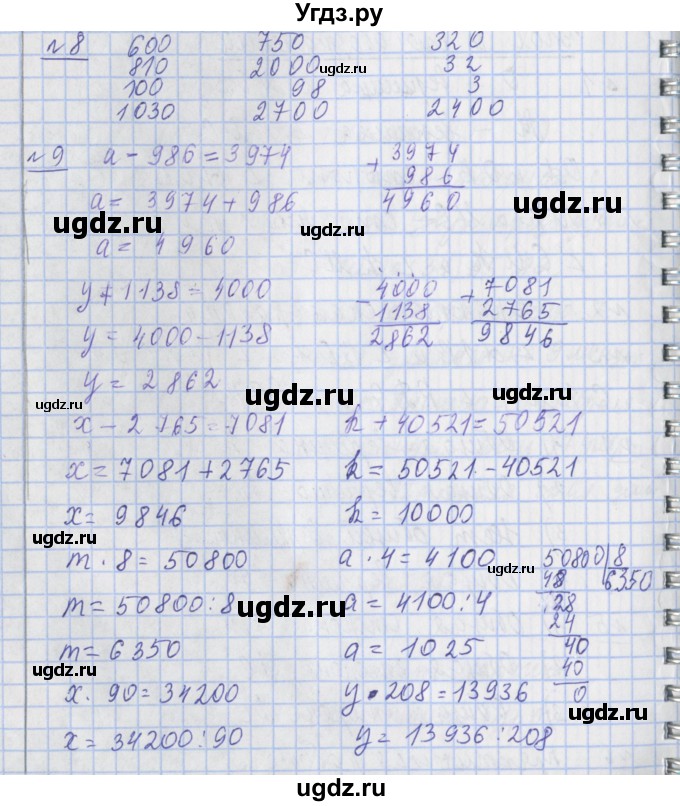 Угдз.ру
№8 600 750 320
810 2000 32
100 98 3
1030 2700 2400
№9 a - 986 = 3974
a = 3974 + 986
a = 4960
+ 3974
986
4960
y + 1138 = 4000
y = 4000 - 1138
y = 2862
- 4000
1138
2862
+ 7081
2765
9846
x - 2765 = 7081
x = 7081 + 2765
x = 9846
k + 40521 = 50521
k = 50521 - 40521
k = 10000
m · 8 = 50800
m = 50800 : 8
m = 6350
a · 4 = 4100
a = 4100 : 4
a = 1025
50800 | 8
48 6350
28
24
40
40
0
x · 90 = 34200
x = 34200 : 90
y · 208 = 13936
y = 13936 : 208
ugdz.ru
ugdz.ru
ugdz.ru
ugdz.ru
ugdz.ru
ugdz.ru
ugdz.ru
ugdz.ru
ugdz.ru
ugdz.ru
ugdz.ru
ugdz.ru
ugdz.ru
ugdz.ru